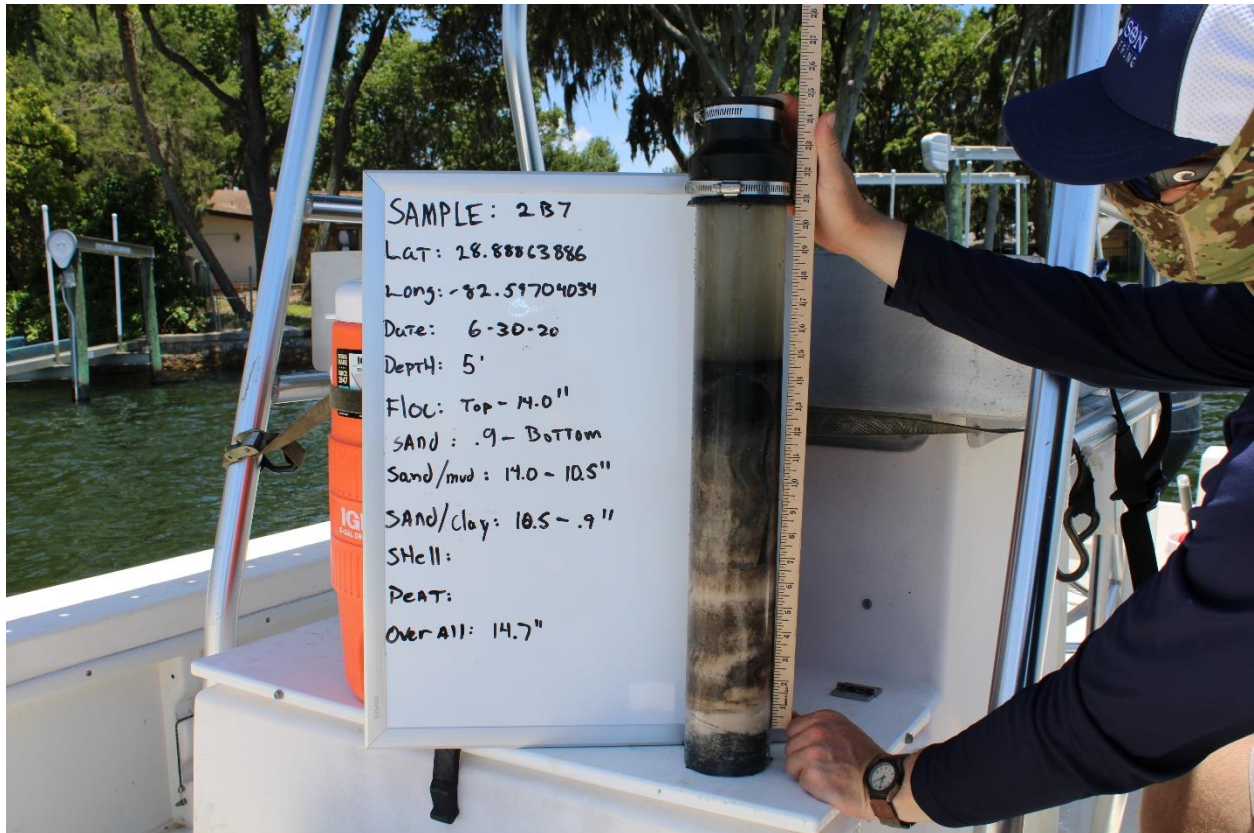 SAMPLE: 2B7
Lat: 28.88863886
Long: -82.59704034
Date: 6-30-20
Depth: 5'
Floc: Top - 14.0"
SAnd: .9 - Bottom
Sand/mud: 14.0 - 10.5"
SAnd/Clay: 10.5 - .9"
SHell:
PeAT:
Over All: 14.7"